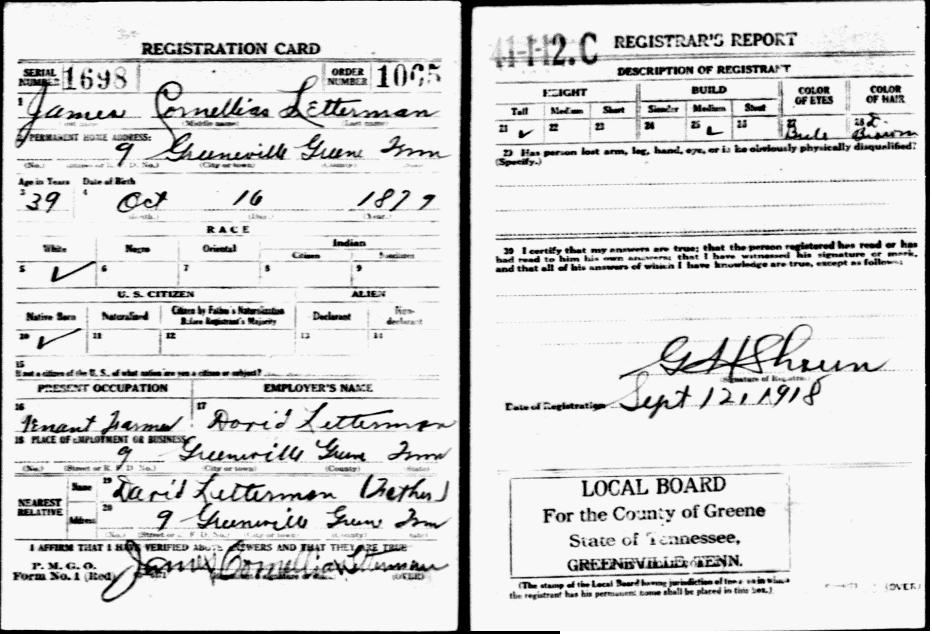 REGISTRATION CARD
SERIAL NUMBER 1698 ORDER NUMBER 1065
1 James Cornellias Letterman
(Middle name) (Last name)
2 PERMANENT HOME ADDRESS:
9 Greeneville Greene Tenn
(No.) (City or town) (County) (State)
Age in Years Date of Birth
3 39 4 Oct 16 1879
(Month.) (Day.) (Year.)
RACE
White Negro Oriental Indian
Citizen Noncitizen
5 ✓ 6 7 8 9
U. S. CITIZEN ALIEN
Native Born Naturalized Citizen by Father's Naturalization Before Registrant's Majority Declarant Non-declarant
10 ✓ 11 12 13 14
15
If not a citizen of the U. S., of what nation are you a citizen or subject?
PRESENT OCCUPATION EMPLOYER'S NAME
16 Tenant Farmer 17 David Letterman
18 PLACE OF EMPLOYMENT OR BUSINESS
9 Greeneville Green Tenn
(No.) (Street or R. F. D. No.) (City or town) (County) (State)
NEAREST RELATIVE
Name 19 David Letterman (Father)
Address 20 9 Greeneville Green Tenn
(No.) (Street or R. F. D. No.) (City or town) (County) (State)
I AFFIRM THAT I HAVE VERIFIED ABOVE ANSWERS AND THAT THEY ARE TRUE
P. M. G. O.
Form No. 1 (Red) James Cornellias Letterman
(OVER)
41-1-12. C REGISTRAR'S REPORT
DESCRIPTION OF REGISTRANT
HEIGHT BUILD COLOR OF EYES COLOR OF HAIR
Tall Medium Short Slender Medium Stout
21 ✓ 22 23 24 25 ✓ 26 27 28 D. Brown
29 Has person lost arm, leg, hand, eye, or is he obviously physically disqualified?
(Specify.)
30 I certify that my answers are true; that the person registered has read or has
had read to him his own answers; that I have witnessed his signature or mark,
and that all of his answers of which I have knowledge are true, except as follows:
(Signature of Registrar)
Date of Registration Sept 12, 1918
LOCAL BOARD
For the County of Greene
State of Tennessee,
GREENEVILLE, TENN.
(The stamp of the Local Board having jurisdiction of the area in which
the registrant has his permanent home shall be placed in this box.)
(OVER)